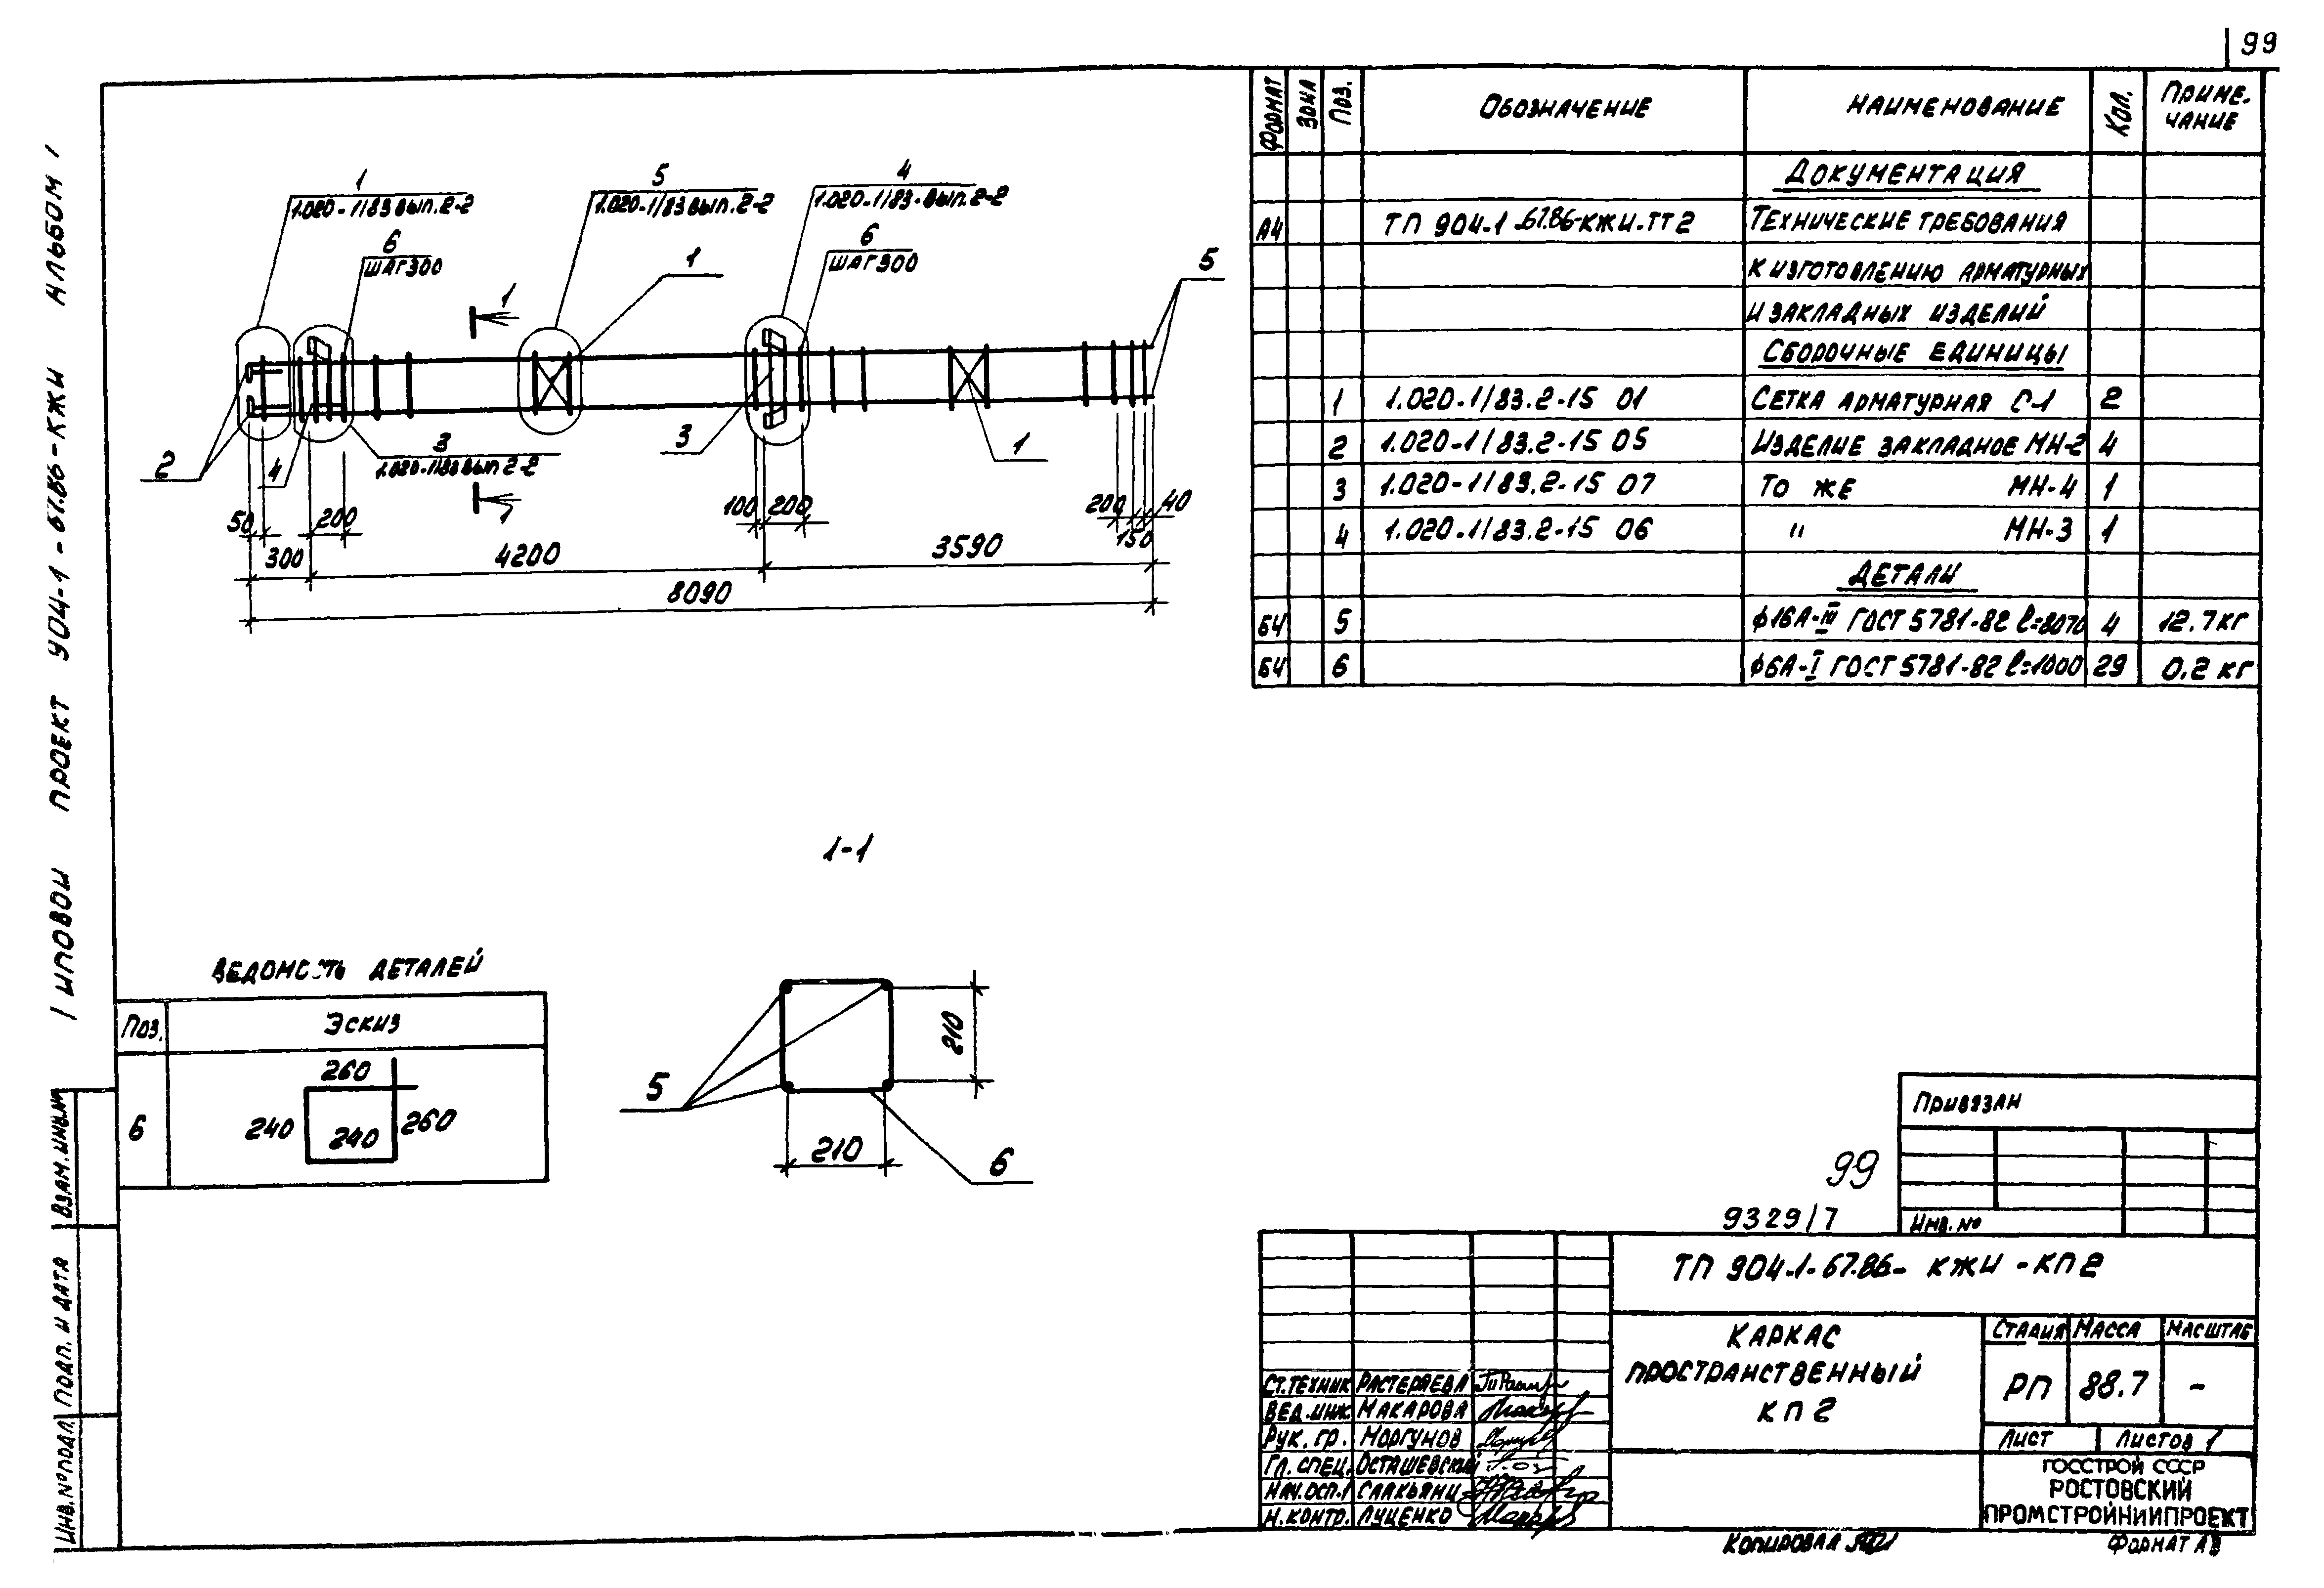 99
ТИПОВОЙ ПРОЕКТ 904-1-67.86-КЖИ АЛЬБОМ 1
1
1.020-1/83 ВЫП.2-2
5
1.020-1/83 ВЫП.2-2
4
1.020-1/83. ВЫП.2-2
6
ШАГ 300
6
ШАГ 300
1
5
1
2
4
3
1.020-1/83 ВЫП 2-2
3
1
1
50
200
100
200
200
150
40
300
4200
3590
8090
ФОРМАТ ЗОНА ПОЗ. ОБОЗНАЧЕНИЕ НАИМЕНОВАНИЕ КОЛ. ПРИМЕ-
ЧАНИЕ
ДОКУМЕНТАЦИЯ
А4 ТП 904-1-67.86-КЖИ.ТТ2 ТЕХНИЧЕСКИЕ ТРЕБОВАНИЯ
К ИЗГОТОВЛЕНИЮ АРМАТУРНЫХ
И ЗАКЛАДНЫХ ИЗДЕЛИЙ
СБОРОЧНЫЕ ЕДИНИЦЫ
1 1.020-1/83.2-15 01 СЕТКА АРМАТУРНАЯ С-1 2
2 1.020-1/83.2-15 05 ИЗДЕЛИЕ ЗАКЛАДНОЕ МН-2 4
3 1.020-1/83.2-15 07 ТО ЖЕ МН-4 1
4 1.020-1/83.2-15 06 " МН-3 1
ДЕТАЛИ
Б4 5 ϕ16А-III ГОСТ 5781-82 ℓ=8070 4 12.7 КГ
Б4 6 ϕ6А-I ГОСТ 5781-82 ℓ=1000 29 0.2 КГ
1-1
ВЕДОМОСТЬ ДЕТАЛЕЙ
ПОЗ. ЭСКИЗ
6
260
240
240
260
5
210
210
6
ПРИВЯЗАН
ИНВ.№
99
9329/7
ТП 904-1-67.86- КЖИ -КП2
КАРКАС
ПРОСТРАНСТВЕННЫЙ
КП2
СТАДИЯ МАССА МАСШТАБ
РП 88.7 -
ЛИСТ ЛИСТОВ 1
ГОССТРОЙ СССР
РОСТОВСКИЙ
ПРОМСТРОЙНИИПРОЕКТ
СТ.ТЕХНИК РАСТЕРЯЕВА
ВЕД.ИНЖ. МАКАРОВА
РУК. ГР. МОРГУНОВ
ГЛ. СПЕЦ. ОСТАШЕВСКИЙ
НАЧ.ОСП-1 СААКЬЯНЦ
Н.КОНТР. ЛУЦЕНКО
КОПИРОВАЛ
ФОРМАТ А3
ВЗАМ.ИНВ.№
ПОДП. И ДАТА
ИНВ.№ ПОДЛ.